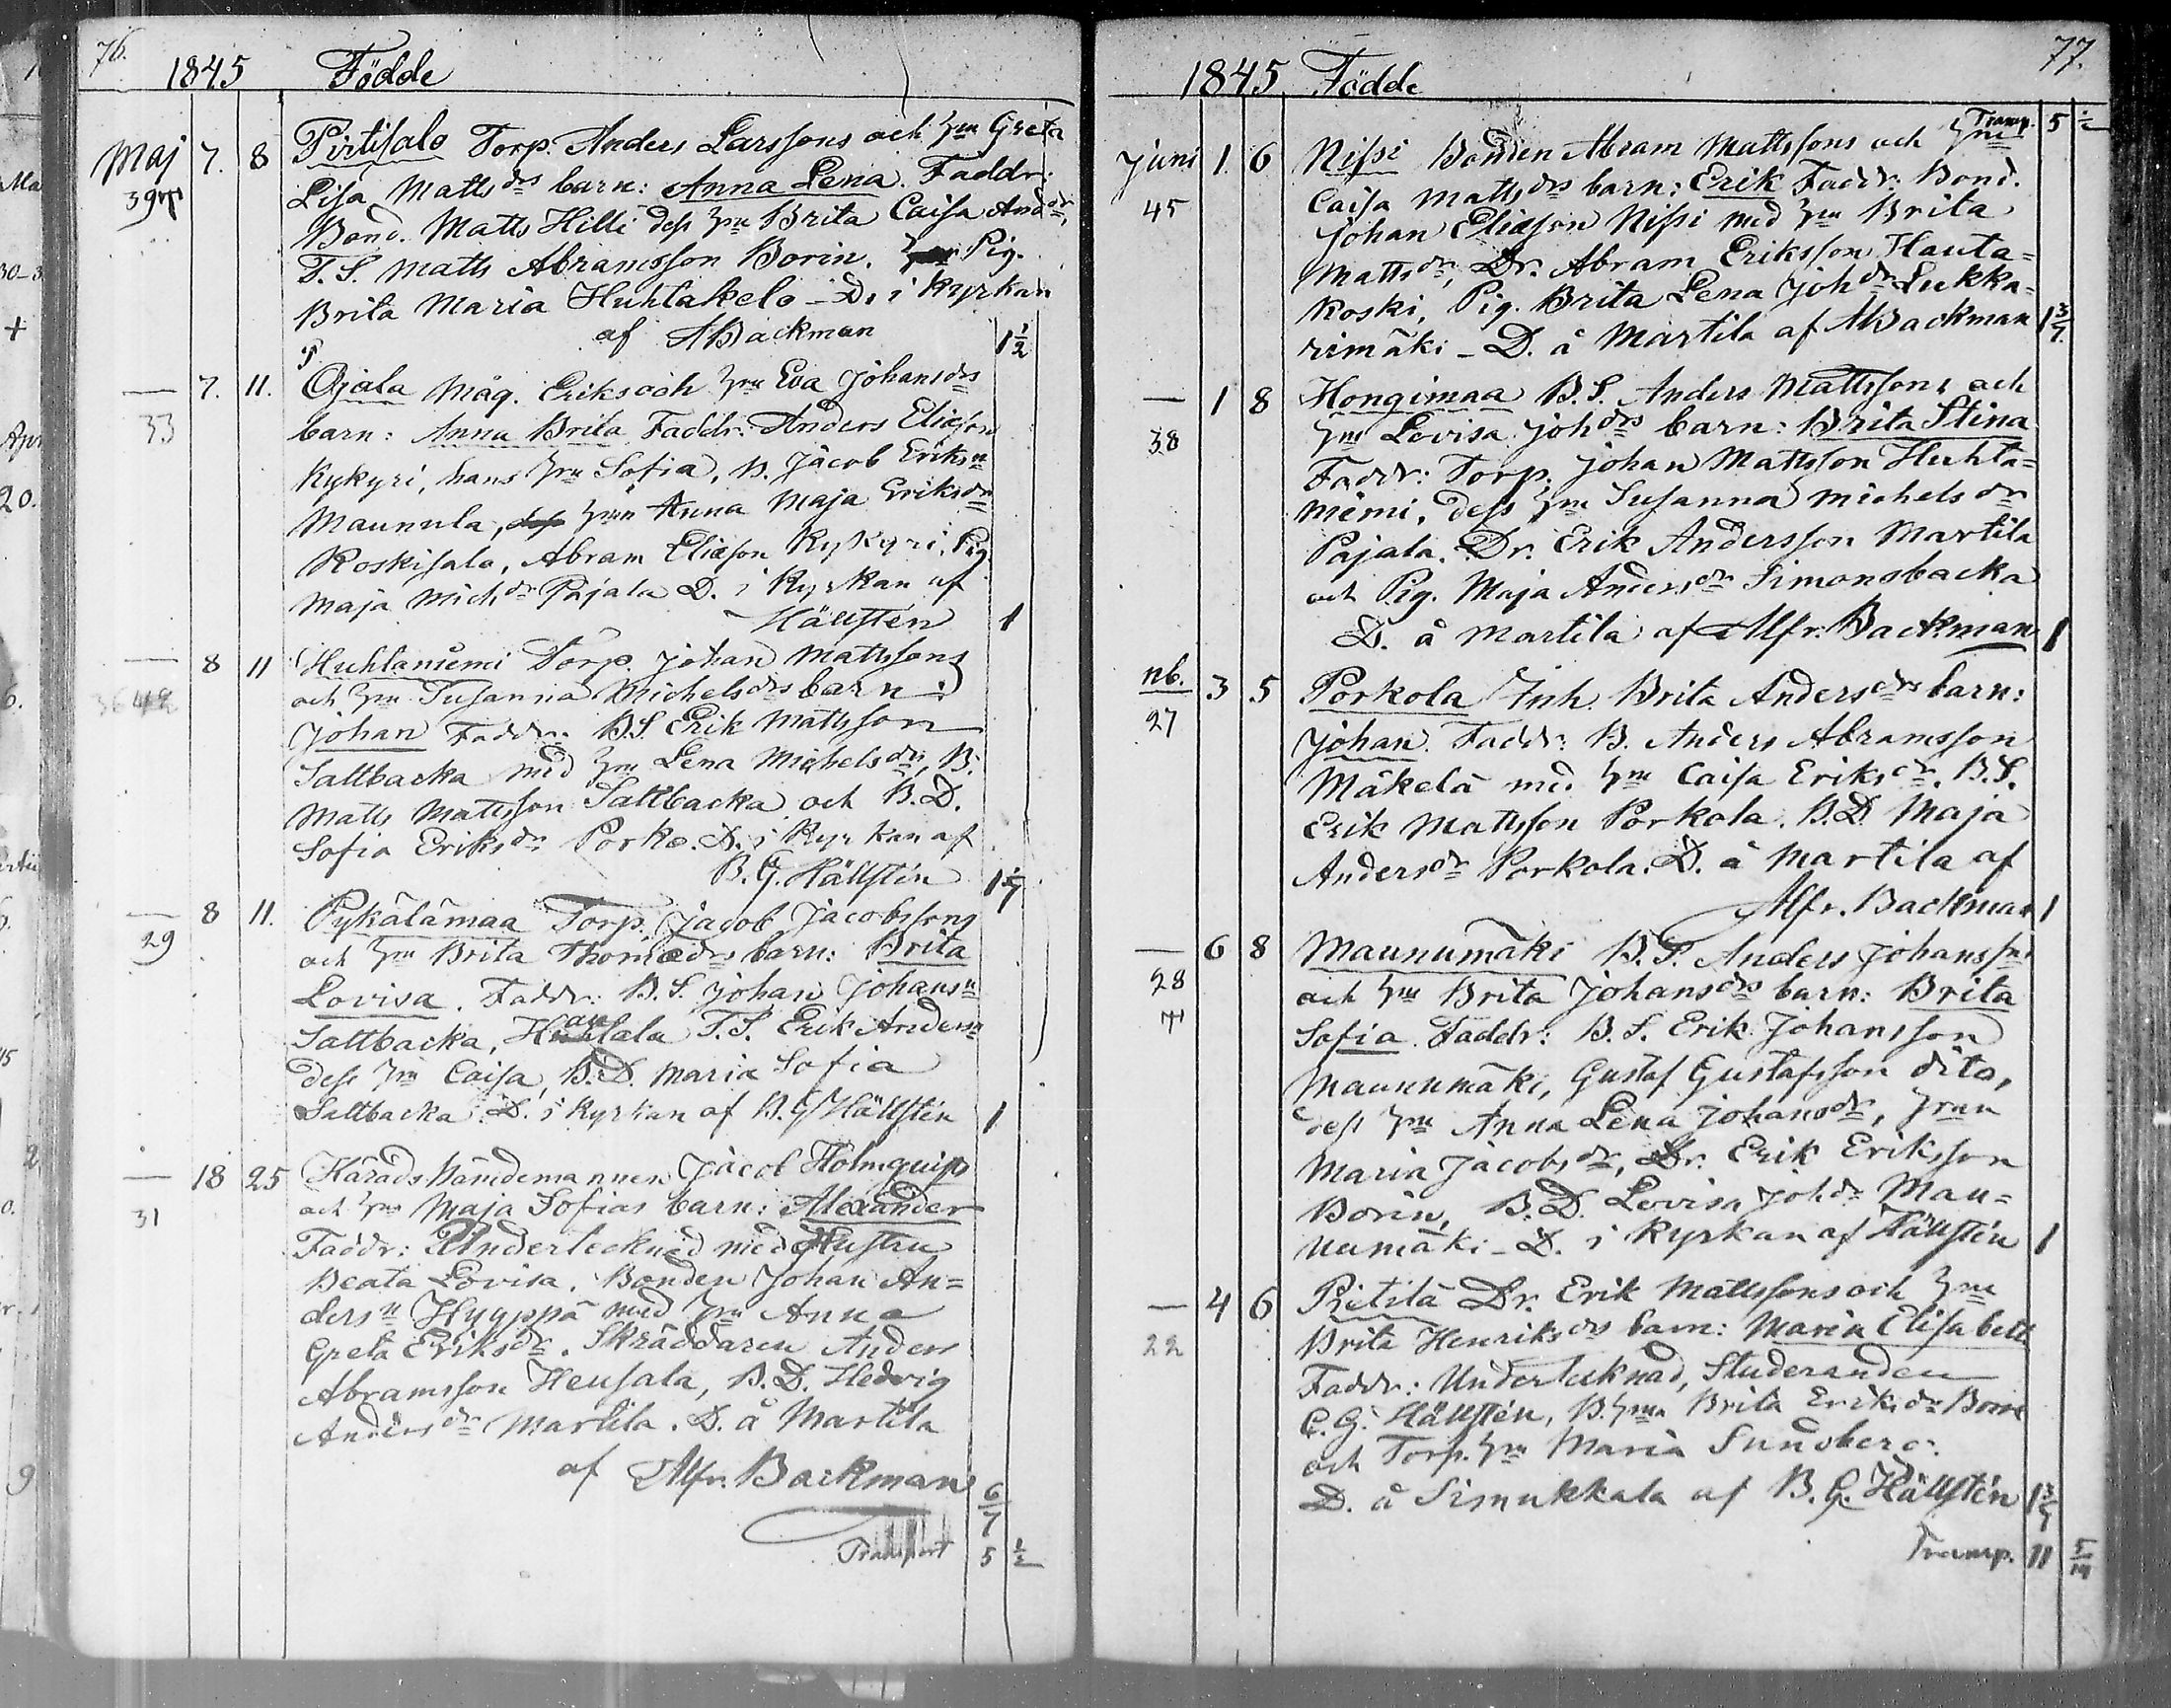 76.
1845 Födde
Maj 7. 8 Pirtisalo Torp. Anders Larssons och hu Greta
39 Lisa Mattsdrs barn: Anna Lena. Faddr:
Bond. Matts Hilli dess hu Brita Caisa Andsdr,
T. S. Matts Abramsson Borin. Pig.
Brita Maria Huhtakelo - D. i kyrkan
af ABackman 1 1/2
— 7. 11. Ojala Måg. Eriks och hu Eva Johansdrs
33 barn: Anna Brita Faddr: Anders Eliasson
Kykyri, hans hu Sofia, B. Jacob Eriksn
Maunula, hun Anna Maja Eriksdr
Koskisala, Abram Eliasson Kykyri, Pig
Maja Michdr Pajala D. i Kyrkan af
Hällstén 1
— 8 11 Huhtaniemi Torp. Johan Mattssons
36 och hu Susanna Michelsdrs barn:
Johan Faddr. B.S. Erik Mattsson
Saltbacka med hu Lena Michelsdr, B.
Matts Mattsson Saltbacka och B. D.
Sofia Eriksdr Porko. D. i Kyrkan af
B. G. Hällstén
— 8 11. Pykälämaa Torp. Jacob Jacobssons
29 och hu Brita Thomædrs barn: Brita
Lovisa. Faddr: B. S. Johan Johansn
Saltbacka, T. S. Erik Andersn
dess hu Caisa, B. D. Maria Sofia
Saltbacka D. i kyrkan af B. G Hällstén 1
— 18 25 Härads Nämdemannen Jacob Holmquists
31 och hu Maja Sofias barn: Alexander
Faddr: Undertecknad med Hustru
Beata Lovisa, Bonden Johan An=
dersn Hyyppä med hu Anna
Greta Eriksdr. Skräddaren Anders
Abramsson Heusala, B. D. Hedvig
Andersdr Martila. D. å Martila
af Alfr. Backman 6/7
Transport 5 1/2
77.
1845 Födde
Transp. 5 1/2
Juni 1. 6 Nissi Bonden Abram Mattssons och hu
45 Caisa Mattsdrs barn: Erik Faddr: Bond.
Johan Eliasson Nissi med hu Brita
Mattsdr, Dr. Abram Eriksson Hauta=
koski, Pig. Brita Lena Johdr Lukka=
rimäki - D. å Martila af ABackman 1 3/7
— 1 8 Hongimaa B. S. Anders Mattssons och
38 hu Lovisa Johdrs barn: Brita Stina
Faddr: Torp. Johan Mattsson Huhta=
niemi, dess hu Susanna Michelsdr
Pajala. Dr. Erik Andersson Martila
och Pig. Maja Andersdr Simonsbacka
D. å Martila af Alfr. Backman 1
nb. 3 5 Porkola Inh. Brita Andersdrs barn:
27 Johan. Faddr: B. Anders Abramsson
Mäkelä med hu Caisa Eriksdr. B. S.
Erik Mattsson Porkola. B. D. Maja
Andersdr Porkola. D. å Martila af
Alfr. Backman 1
— 6 8 Maunumäki B. S. Anders Johanssns
28 och hu Brita Johansdrs barn: Brita
Sofia. Faddr: B. S. Erik Johansson
Maunumäki, Gustaf Gustafsson dito,
dess hu Anna Lena Johansdr, hun
Maria Jacobsdr, Dr. Erik Eriksson
Borin, B. D. Lovisa Johdr Mau=
numäki - D. i Kyrkan af Hällstén 1
— 4 6 Pietilä Dr. Erik Mattssons och hu
22 Brita Henriksdrs barn: Maria Elisabett
Faddr: Undertecknad, Studeranden
C. G. Hällstén, B. hun Brita Eriksdr
och Torp. hu Maria Sundberg.
D. å Simukkala af B. G. Hällstén 1 3/7
Transp. 11 5/14